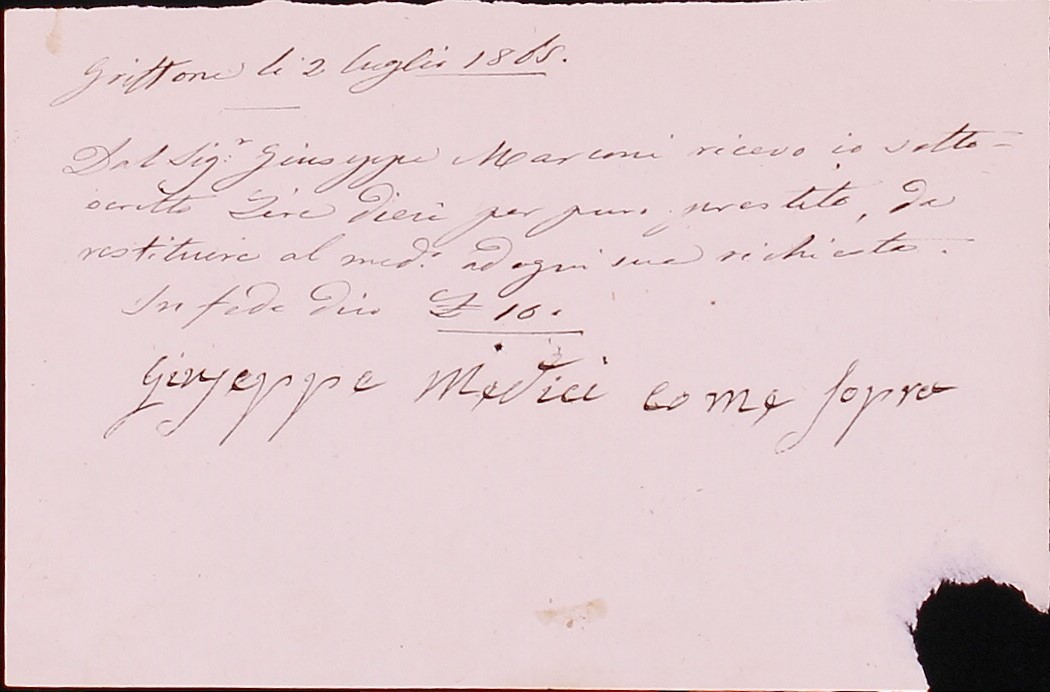 Griffone li 2 luglio 1865.
Dal Sig.r Giuseppe Marconi ricevo io sotto-
scritto Lire dieci per puro prestito, da
restituire al med.o ad ogni sua richiesta.
In fede dico £ 10.
Giuseppe Medici come sopra